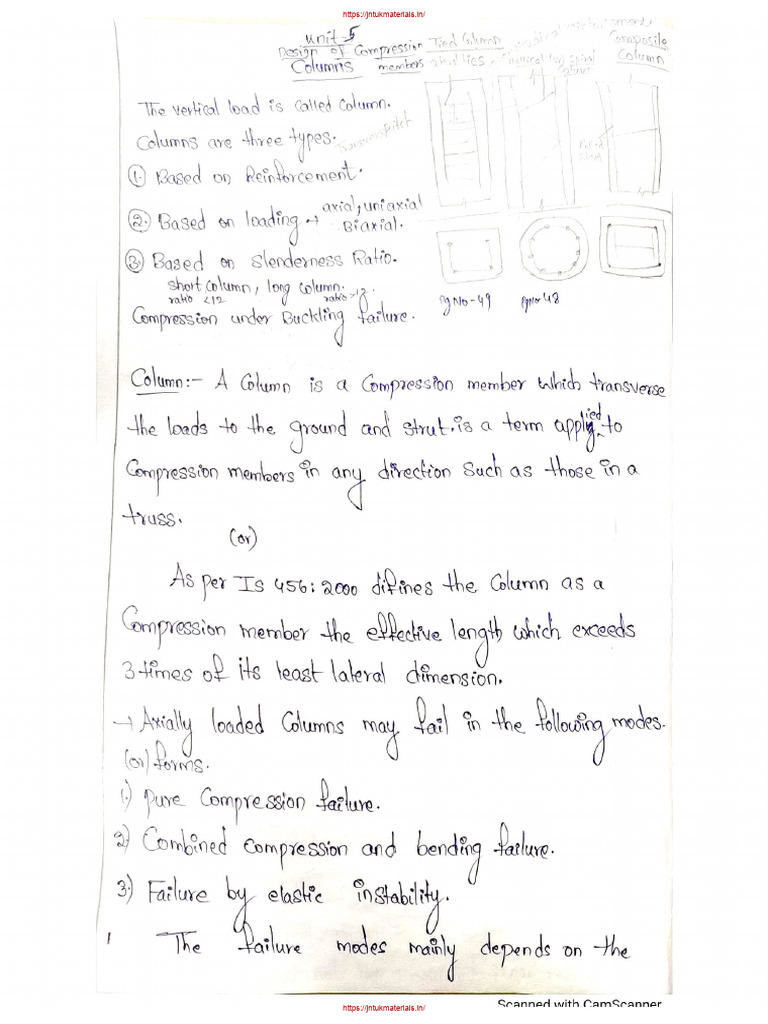 https://jntukmaterials.in/
Unit-5
Design of Compression Tied Column Composite
Columns members Column
The vertical load is called column.
Columns are three types. pitch
① Based on Reinforcement.
② Based on loading → axial, uniaxial
Biaxial.
③ Based on Slenderness Ratio.
short column, long column.
ratio <12 ratio >12
Compression under Buckling failure. Pg No-49 Pg no 48
Column:- A Column is a Compression member which transverse
the loads to the ground and strut. is a term applied to
Compression members in any direction such as those in a
truss.
(or)
As per Is 456:2000 difines the Column as a
Compression member the effective length which exceeds
3 times of its least lateral dimension.
→ Axially loaded Columns may fail in the following modes.
(or) forms.
1.) Pure Compression failure.
2) Combined compression and bending failure.
3.) Failure by elastic instability.
The failure modes mainly depends on the
Scanned with CamScanner
https://jntukmaterials.in/